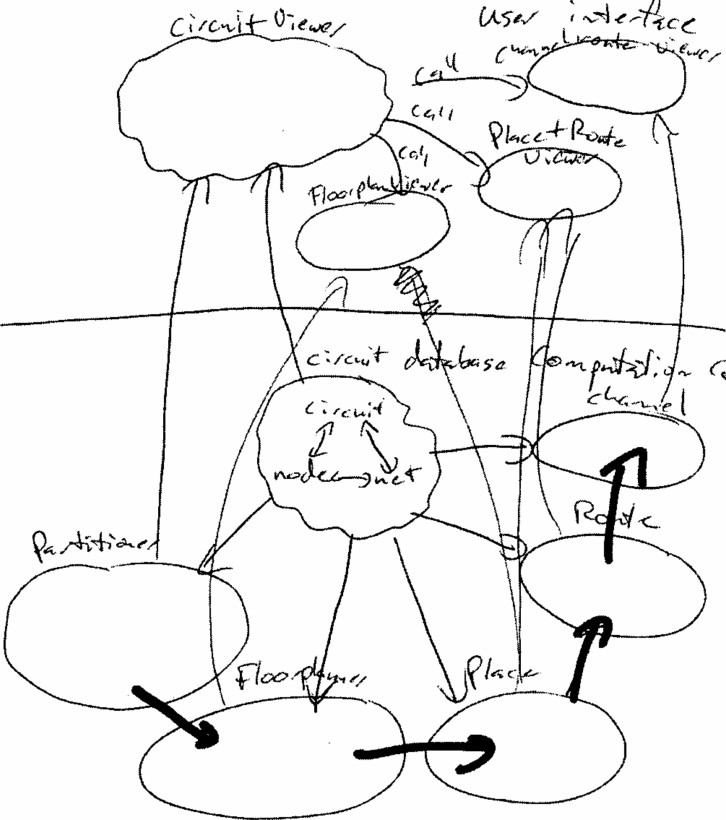 Circuit Viewer
User interface
channel route viewer
call
call
Place + Route
Viewer
call
Floorplan Viewer
circuit database
Computation
channel
circuit
node
net
Route
Partitioner
Floorplanner
Place